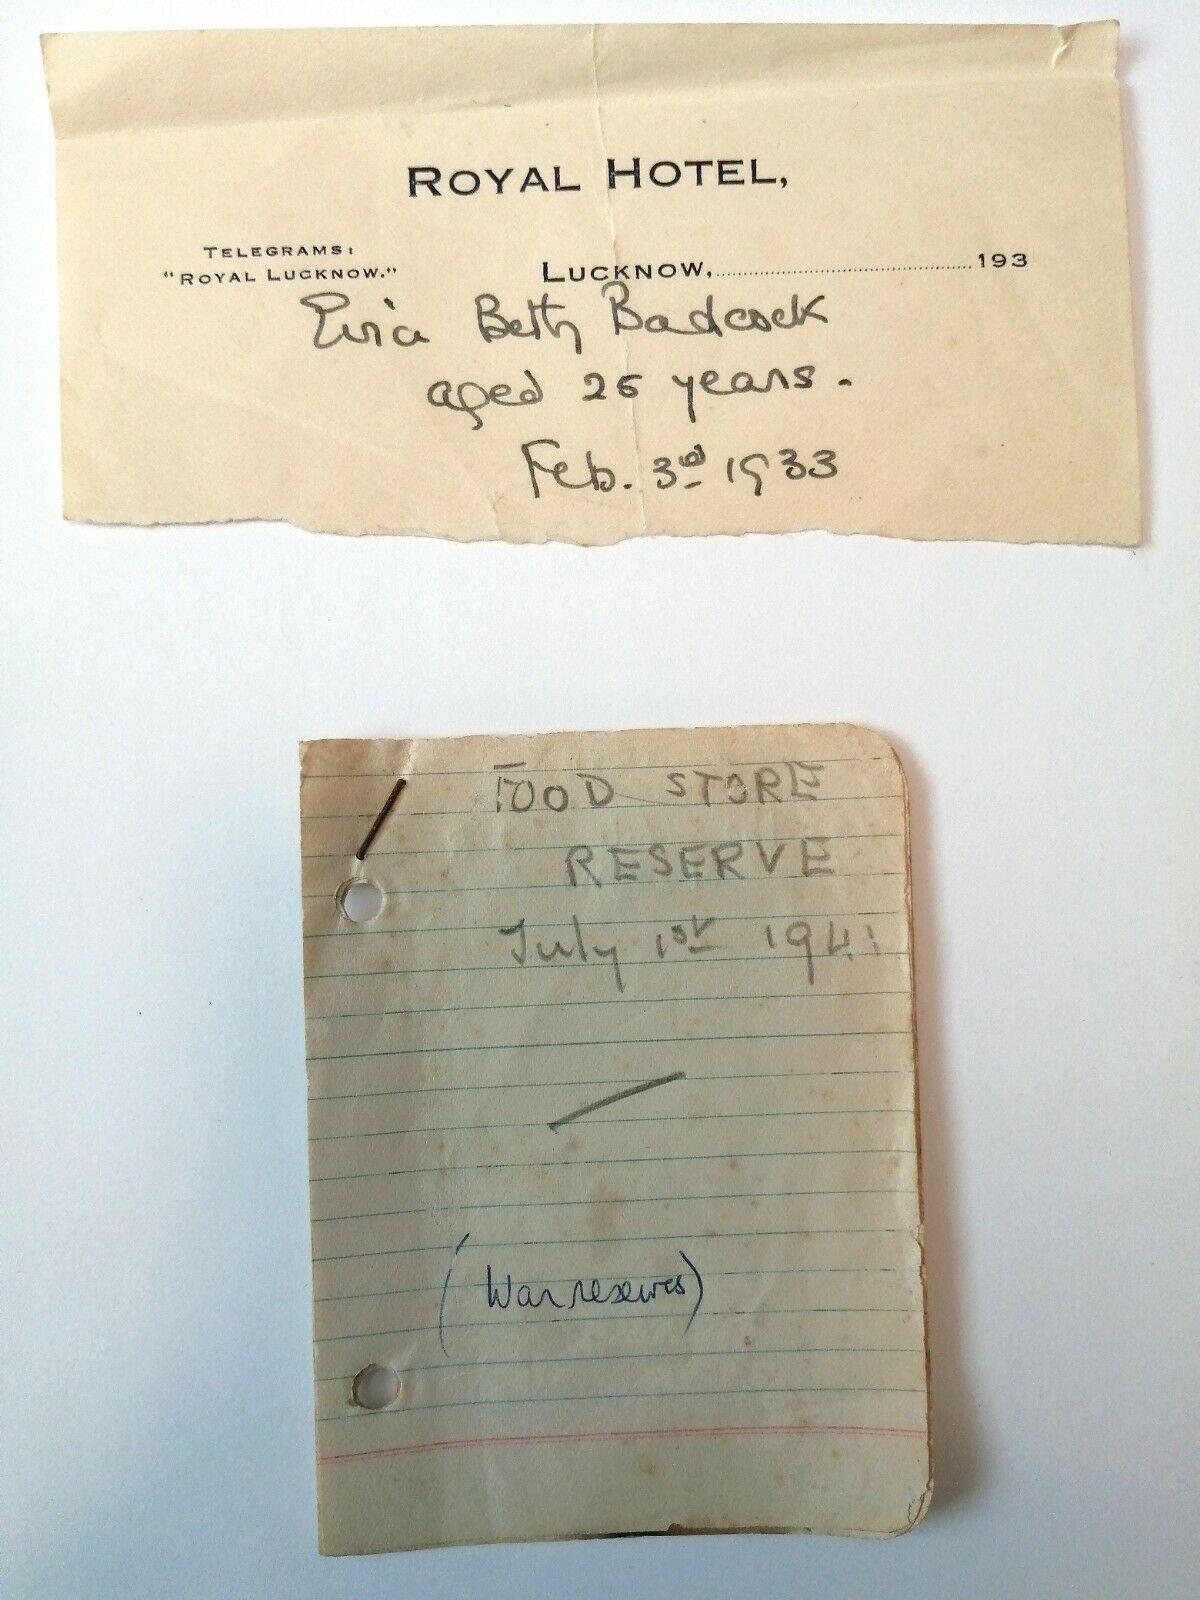 ROYAL HOTEL,
TELEGRAMS:
"ROYAL LUCKNOW."
LUCKNOW,..........................................193
Betty Badcock
aged 26 years.
Feb. 3rd 1933
FOOD STORE
RESERVE
July 1st 1941
(War reserves)